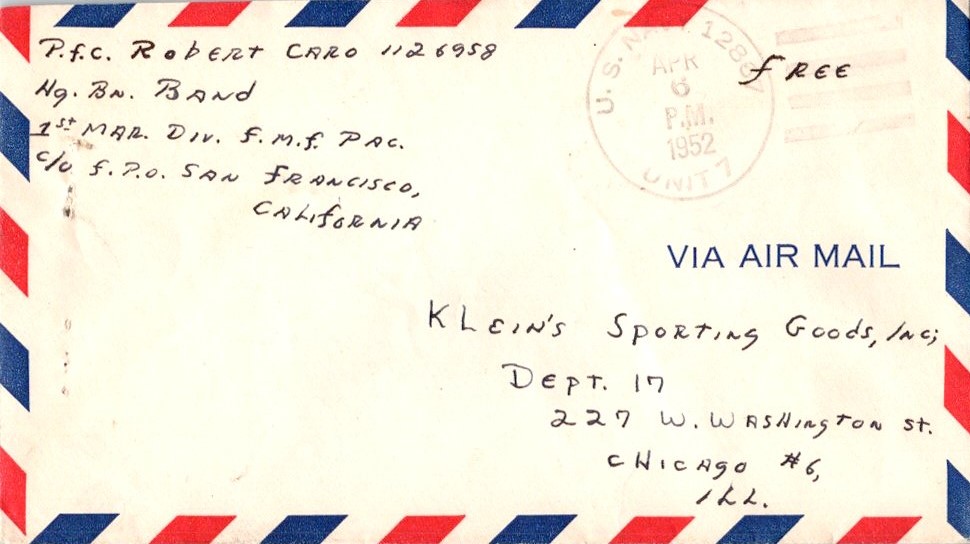 P.f.c. Robert Caro 1126958
Hq. Bn. Band
1st Mar. Div. f.m.f. Pac.
c/o f.P.O. San Francisco,
California
U.S. NAVY 12867
APR
6
P.M.
1952
UNIT 7
free
VIA AIR MAIL
Klein's Sporting Goods, Inc;
Dept. 17
227 W. Washington st.
Chicago #6,
Ill.